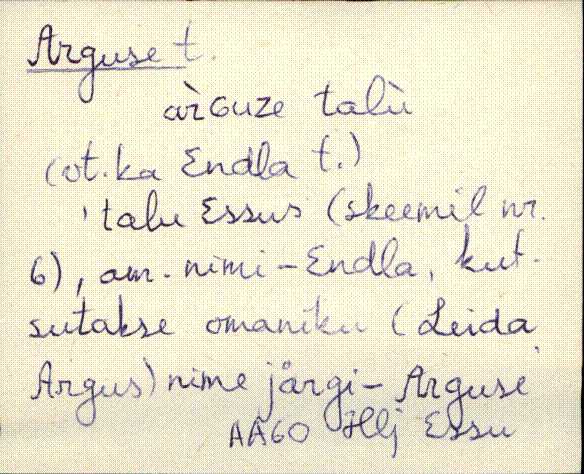 Arguse t.
àrGuze talù
(vt. ka Endla t.)
'talu Essus (skeemil nr.
6), am. nimi - Endla, kut-
sutakse omaniku (Leida
Argus) nime järgi - Arguse'
AA60 Hlj Essu